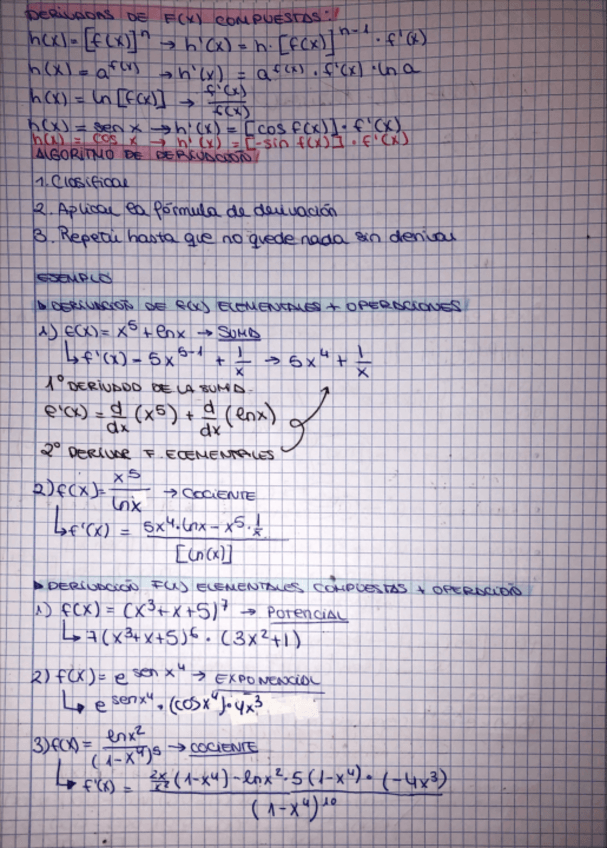 DERIVADAS DE F(X) COMPUESTAS:
h(x) = [f(x)]^n → h'(x) = n · [f(x)]^{n-1} · f'(x)
h(x) = a^{f(x)} → h'(x) = a^{f(x)} · f'(x) · ln a
h(x) = ln [f(x)] → f'(x) / f(x)
h(x) = sen x → h'(x) = [cos f(x)] · f'(x)
h(x) = cos x → h'(x) = [-sin f(x)] · f'(x)
ALGORITMO DE DERIVACIÓN
1. Clasificar
2. Aplicar la fórmula de derivación
3. Repetir hasta que no quede nada sin derivar
EJEMPLO
DERIVACIÓN DE F(X) ELEMENTALES + OPERACIONES
1) f(x) = x^5 + ln x → SUMA
f'(x) = 5x^{5-1} + 1/x → 5x^4 + 1/x
1º DERIVADO DE LA SUMA.
f'(x) = d/dx (x^5) + d/dx (ln x)
2º DERIVAR F. ELEMENTALES
2) f(x) = x^5 / ln x → COCIENTE
f'(x) = 5x^4 · ln x - x^5 · 1/x / [ln(x)]
DERIVACIÓN F(X) ELEMENTALES COMPUESTAS + OPERACIÓN
1) f(x) = (x^3 + x + 5)^7 → POTENCIAL
7(x^3 + x + 5)^6 · (3x^2 + 1)
2) f(x) = e^{sen x^4} → EXPONENCIAL
e^{sen x^4} · (cos x^4) · 4x^3
3) f(x) = ln x^2 / (1 - x^4)^5 → COCIENTE
f'(x) = 2x/x^2 (1 - x^4) - ln x^2 · 5 (1 - x^4) · (-4x^3) / (1 - x^4)^{10}